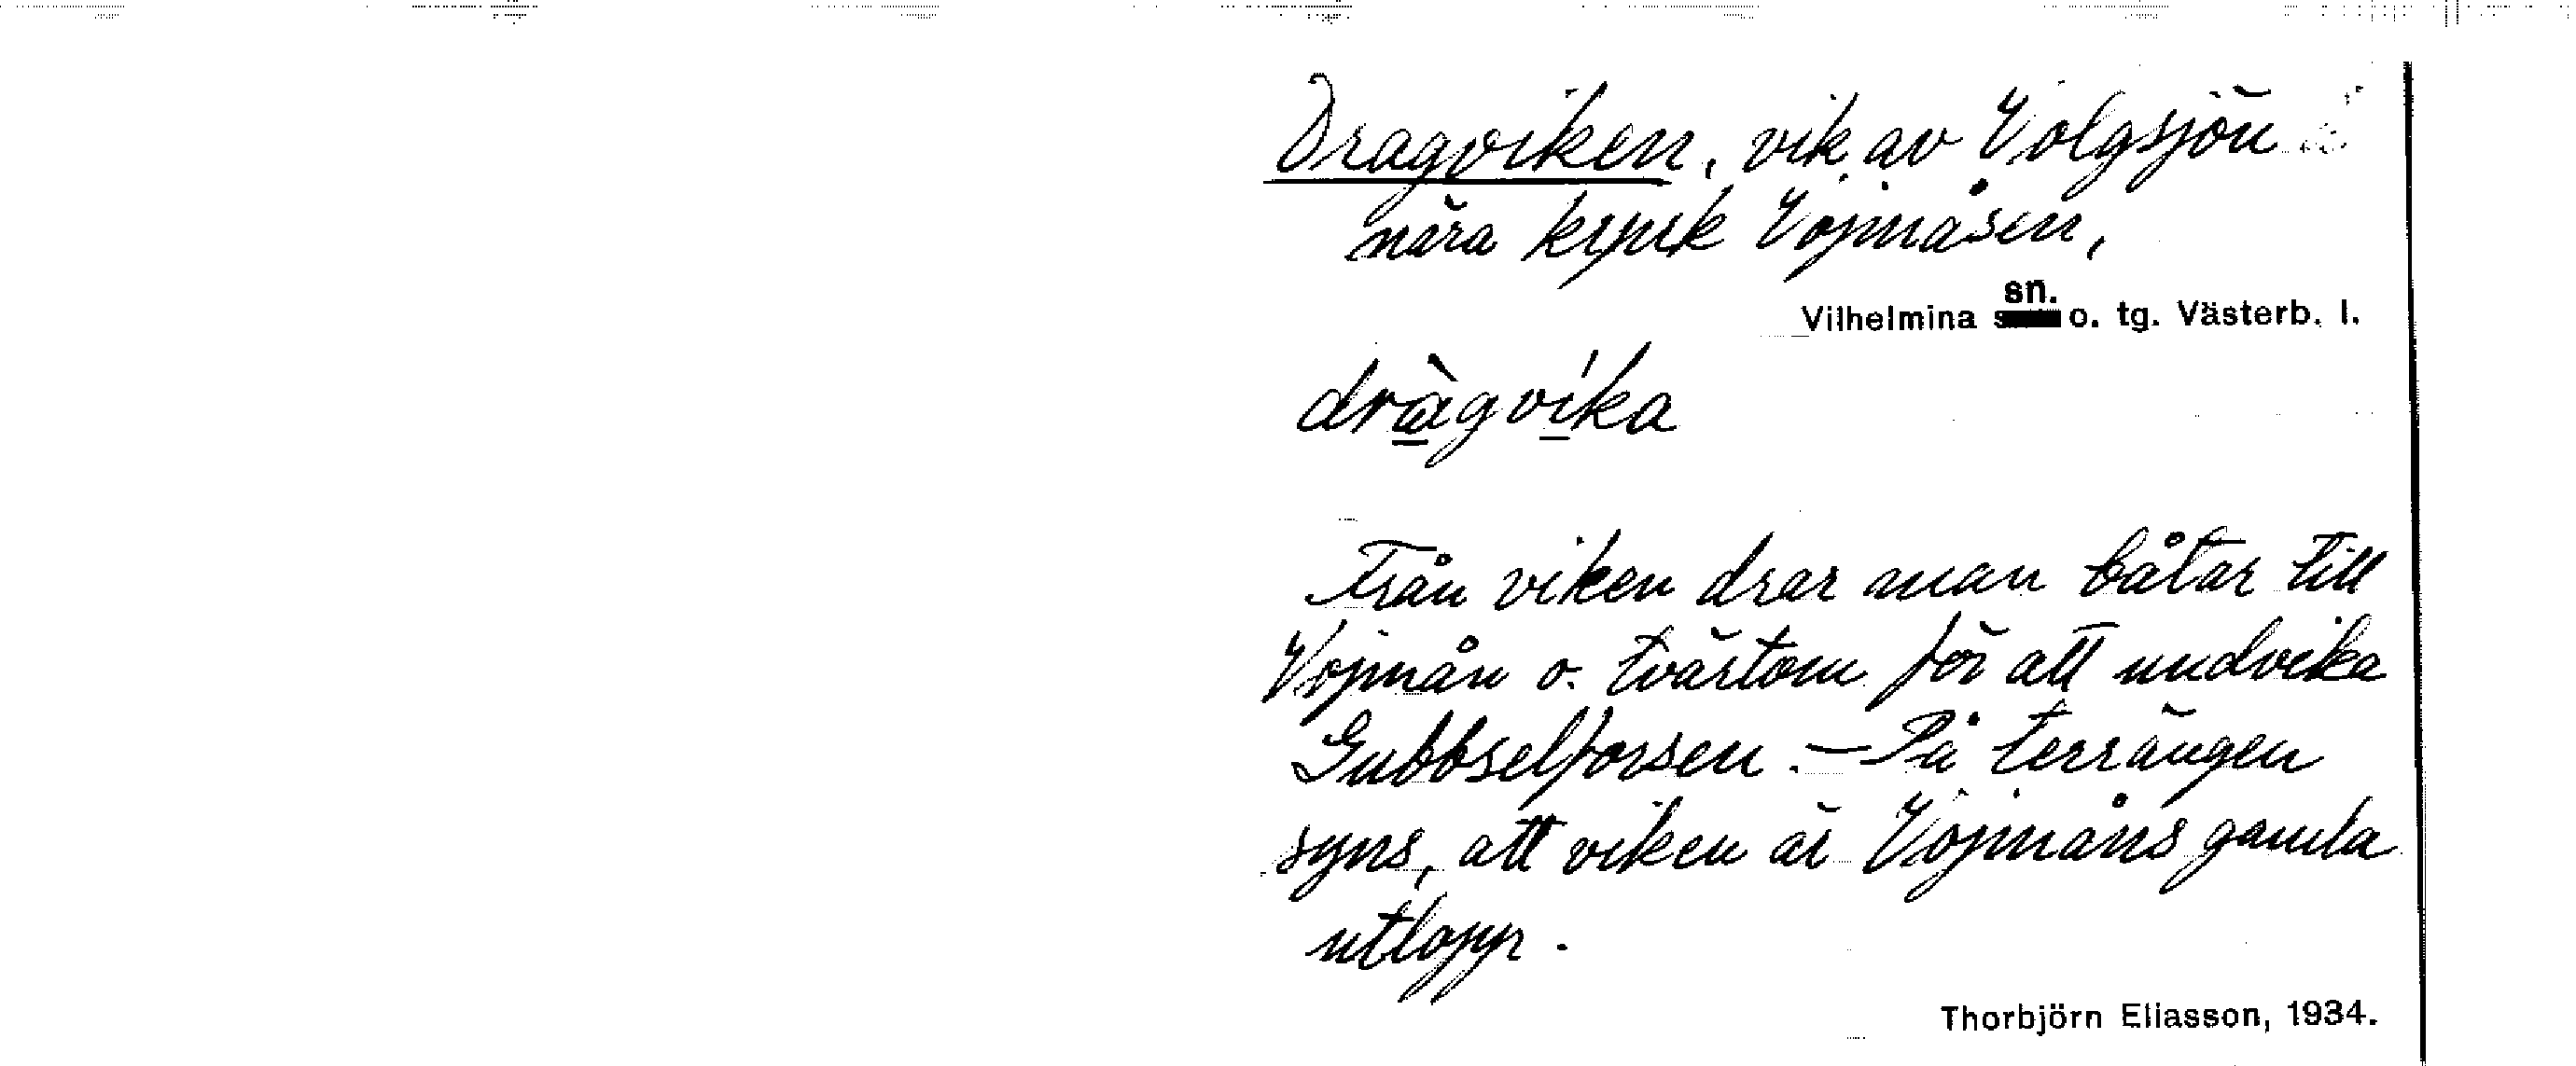 Dragviken, vik av Volgsjön
nära krpik Vojmåsen,
Vilhelmina sn. o. tg. Västerb. l.
dràgvíka
Från viken drar man båtar till
Vojmån o. tvärtom för att undvika
Gubbselforsen. — På terrängen
syns, att viken är Vojmåns gamla
utlopp.
Thorbjörn Eliasson, 1934.